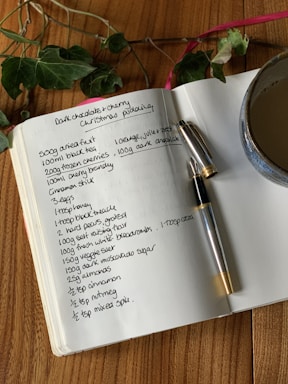 Dark chocolate & cherry
Christmas pudding
500g dried fruit
100ml black tea 1 orange, juice & zest
200g frozen cherries 100g dark
100ml cherry brandy
Cinnamon stick
3 eggs
1 tbsp honey
1 tbsp black treacle
2 hard pears, grated
100g self raising flour
100g fresh white breadcrumbs 1 tbsp cocoa
150g veggie suet
150g dark muscovado sugar
25g almonds
½ tsp cinnamon
½ tsp nutmeg
½ tsp mixed spice